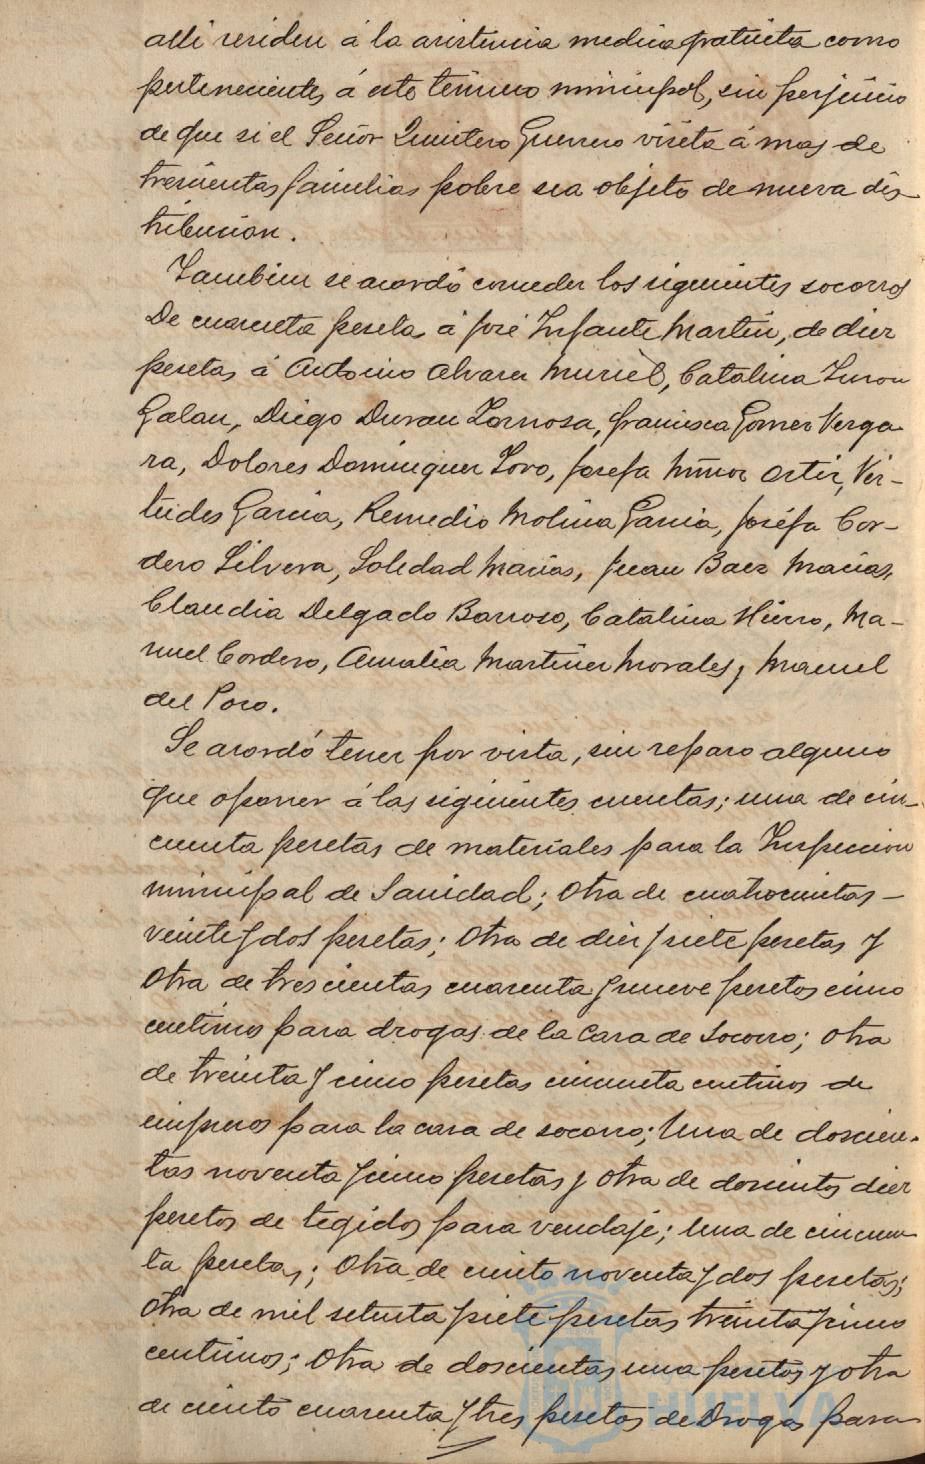 alli residen á la asistencia medica gratuita como
pertenecientes á este termino municipal, sin perjuicio
de que si el Señor Quintero Guerrero visita á mas de
trescientas familias pobre sea objeto de nueva dis-
tribucion.
Tambien se acordó conceder los siguientes socorros
De cuarenta peseta á José Infante Martin, de diez
pesetas á Antonio Alvarez Muriel, Catalina
Galan, Diego Duran Tornosa, francisca Gomez Verga-
ra, Dolores Dominguez Toro, Josefa Muñoz Ortiz, Vir-
tudes Garcia, Remedio Molina Garcia, Joséfa Cor-
dero Silvera, Soledad Macias, Juan Baez Macias,
Claudia Delgado Barroso, Catalina Hierro, Ma-
nuel Cordero, Amalia Martinez Morales y Manuel
del Pozo.
Se acordó tener por vista, sin reparo alguno
que oponer á las siguientes cuentas; una de cin-
cuenta pesetas de materiales para la Inspeccion
municipal de Sanidad; Otra de cuatrocientas -
veinte y dos pesetas; Otra de diez y siete pesetas y
Otra de trescientas cuarenta y nueve pesetas cinco
centimos para drogas de la Casa de Socorro; Otra
de treinta y cinco pesetas cincuenta centimos de
impresos para la casa de socorro; Una de doscien-
tas noventa y cinco pesetas y Otra de docientos diez
pesetas de tegidos para vendaje; Una de cincuen-
ta pesetas; Otra de ciento noventa y dos pesetas;
Otra de mil setenta y siete pesetas treinta y cinco
centimos; Otra de doscientas una pesetas y otra
de ciento cuarenta y tres pesetas de Drogas para
HUELVA